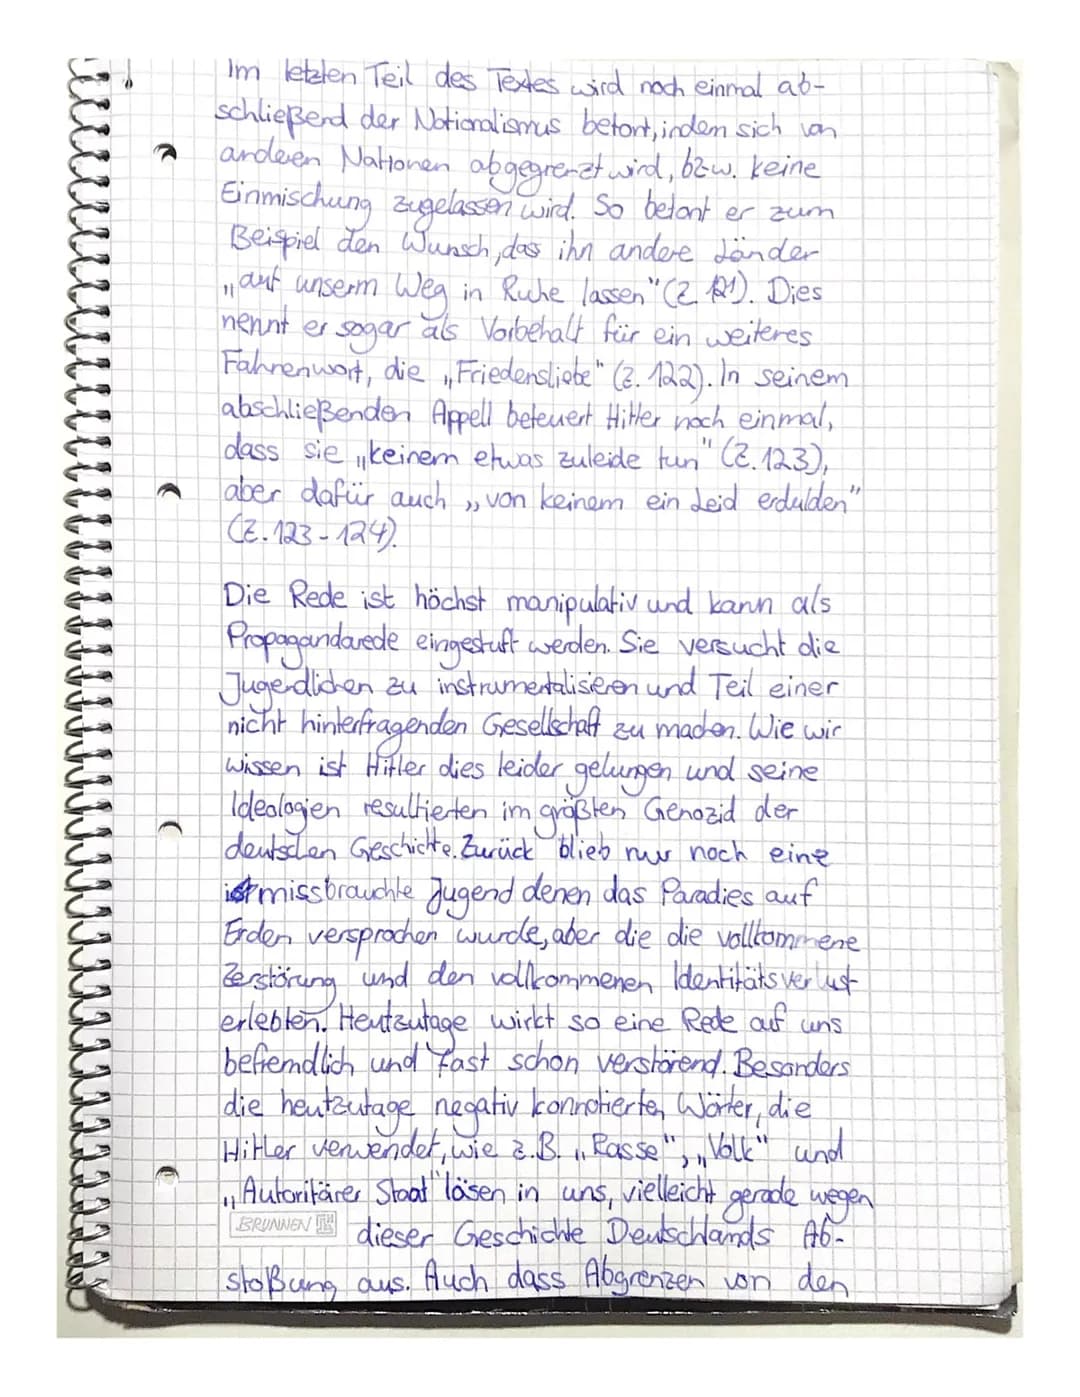 Im letzten Teil des Textes wird noch einmal ab-
schließend der Nationalismus betont, indem sich von
anderen Nationen abgegrenzt wird, bzw. keine
Einmischung zugelassen wird. So betont er zum
Beispiel den Wunsch, das ihn andere Länder
„auf unserm Weg in Ruhe lassen" (Z. 121). Dies
nennt er sogar als Vorbehalt für ein weiteres
Fahnenwort, die „Friedensliebe" (Z. 122). In seinem
abschließenden Appell beteuert Hitler noch einmal,
dass sie „keinem etwas zuleide tun" (Z. 123),
aber dafür auch „von keinem ein Leid erdulden"
(Z. 123 - 124).
Die Rede ist höchst manipulativ und kann als
Propagandarede eingestuft werden. Sie versucht die
Jugendlichen zu instrumentalisieren und Teil einer
nicht hinterfragenden Gesellschaft zu machen. Wie wir
wissen ist Hitler dies leider gelungen und seine
Ideologien resultierten im größten Genozid der
deutschen Geschichte. Zurück blieb nur noch eine
missbrauchte Jugend denen das Paradies auf
Erden versprochen wurde, aber die die vollkommene
Zerstörung und den vollkommenen Identitätsverlust
erlebten. Heutzutage wirkt so eine Rede auf uns
befremdlich und fast schon verstörend. Besonders
die heutzutage negativ konnotierten Wörter, die
Hitler verwendet, wie z.B. „Rasse", „Volk" und
„Autoritärer Staat" lösen in uns, vielleicht gerade wegen
BRUNNEN dieser Geschichte Deutschlands Ab-
stoßung aus. Auch dass Abgrenzen von den